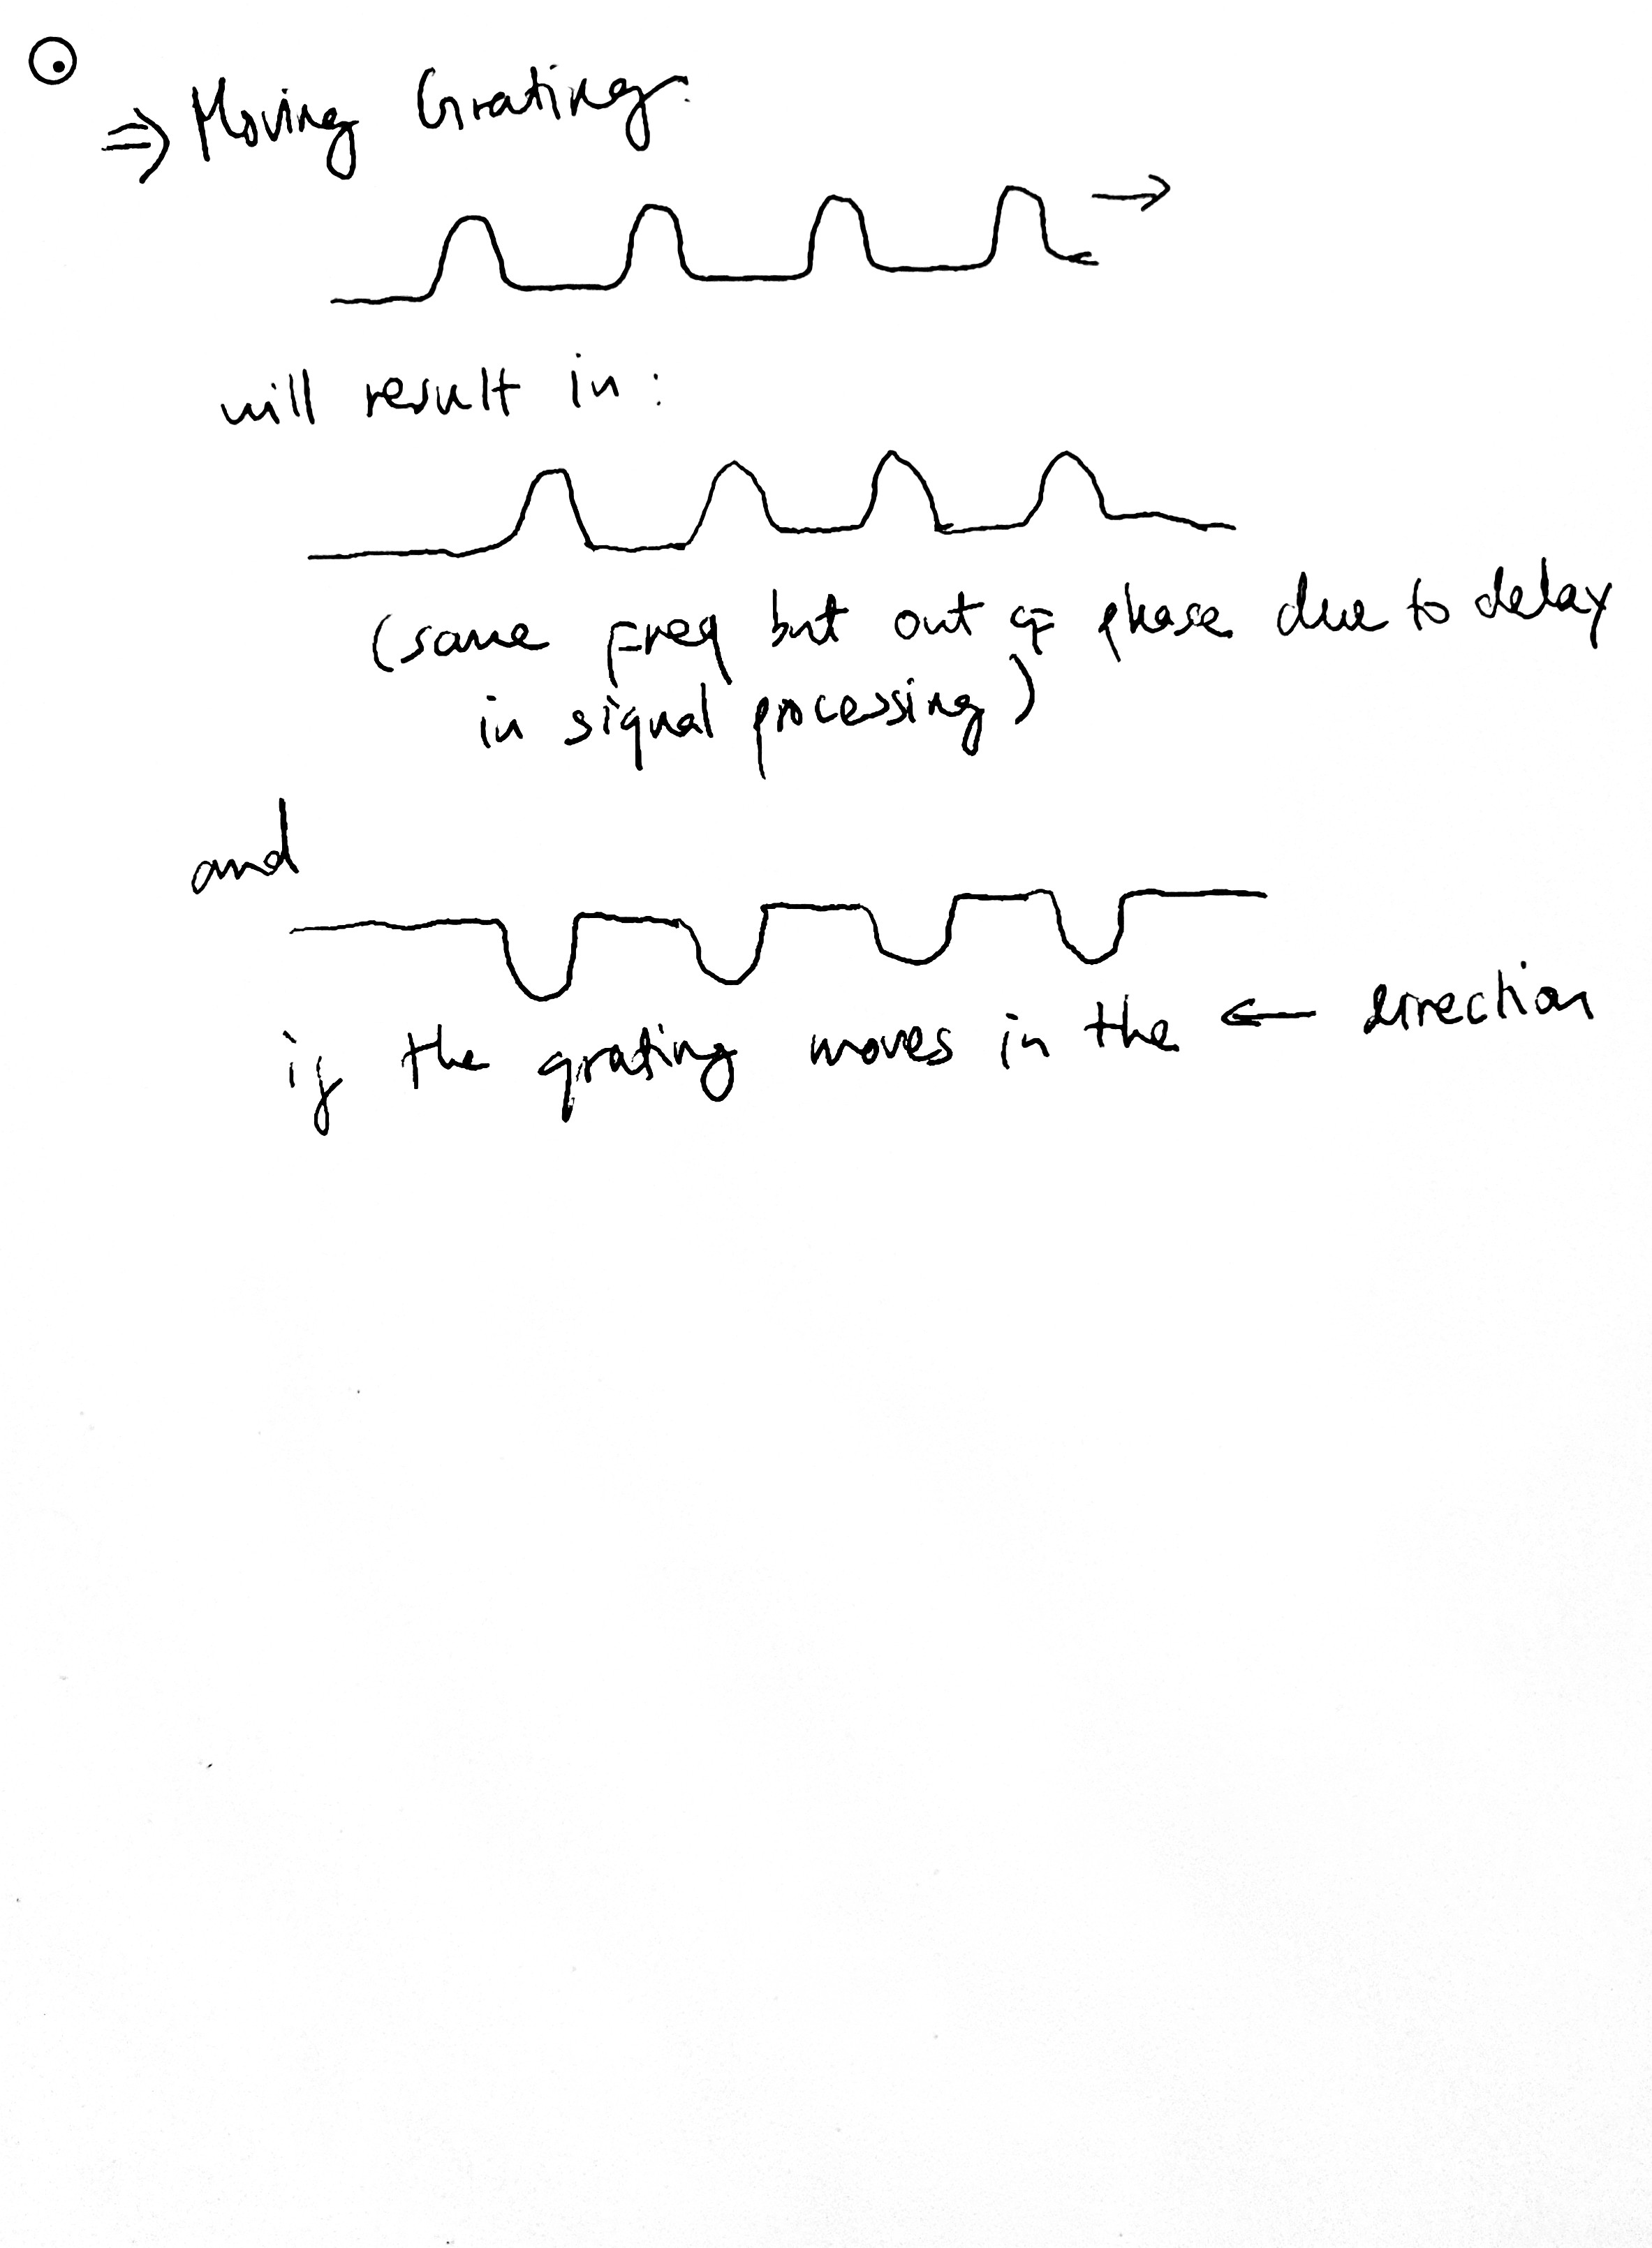 ⇒ Moving Grating:
→
will result in:
(same freq but out of phase due to delay
in signal processing)
and
if the grating moves in the ← direction